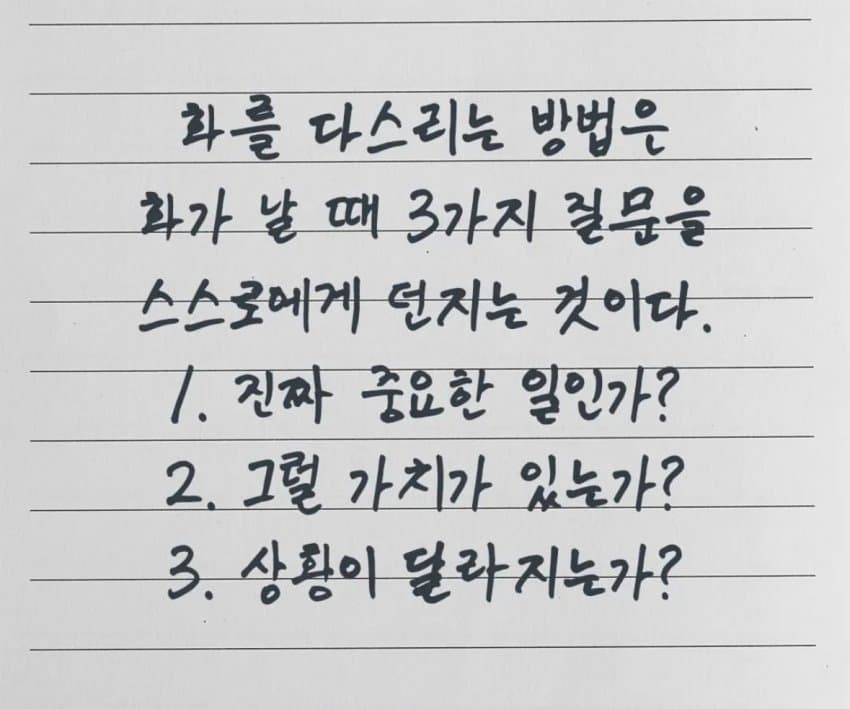 화를 다스리는 방법은
화가 날 때 3가지 질문을
스스로에게 던지는 것이다.
1. 진짜 중요한 일인가?
2. 그럴 가치가 있는가?
3. 상황이 달라지는가?